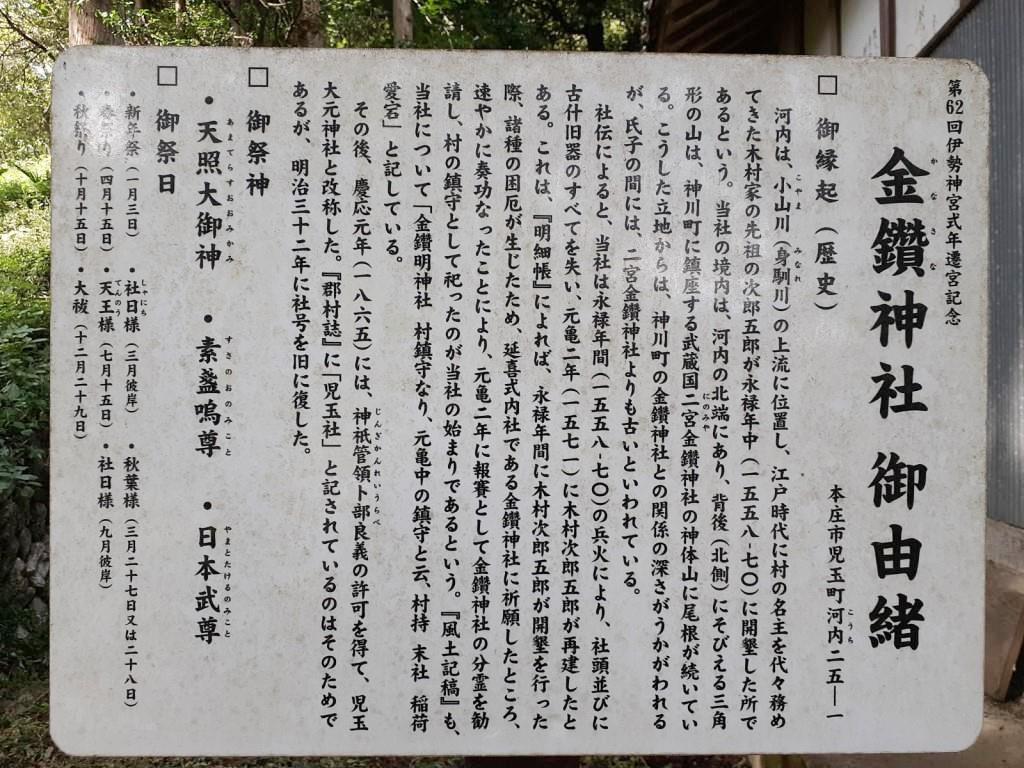 第62回伊勢神宮式年遷宮記念
金鑽神社 御由緒
かなさな
本庄市児玉町河内二五―一
こうち
□ 御縁起（歴史）
河内は、小山川（身馴川）の上流に位置し、江戸時代に村の名主を代々務め
こやま みなれ
てきた木村家の先祖の次郎五郎が永禄年中（一五五八-七〇）に開墾した所で
あるという。当社の境内は、河内の北端にあり、背後（北側）にそびえる三角
形の山は、神川町に鎮座する武蔵国二宮金鑽神社の神体山に尾根が続いてい
にのみや
る。こうした立地からは、神川町の金鑽神社との関係の深さがうかがわれる
が、氏子の間には、二宮金鑽神社よりも古いといわれている。
社伝によると、当社は永禄年間（一五五八-七〇）の兵火により、社頭並びに
古什旧器のすべてを失い、元亀二年（一五七一）に木村次郎五郎が再建したと
ある。これは、『明細帳』によれば、永禄年間に木村次郎五郎が開墾を行った
際、諸種の困厄が生じたため、延喜式内社である金鑽神社に祈願したところ、
速やかに奏功なったことにより、元亀二年に報賽として金鑽神社の分霊を勧
請し、村の鎮守として祀ったのが当社の始まりであるという。『風土記稿』も、
当社について「金鑽明神社 村鎮守なり、元亀中の鎮守と云、村持 末社 稲荷
愛宕」と記している。
その後、慶応元年（一八六五）には、神祇管領卜部良義の許可を得て、児玉
じんぎかんれいうらべ
大元神社と改称した。『郡村誌』に「児玉社」と記されているのはそのためで
あるが、明治三十二年に社号を旧に復した。
□ 御祭神
・天照大御神 ・素盞嗚尊 ・日本武尊
あまてらすおおみかみ すさのおのみこと やまとたけるのみこと
□ 御祭日
・新年祭（一月三日） ・社日様（三月彼岸） ・秋葉様（三月二十七日又は二十八日）
しゃにち
・春祭り（四月十五日） ・天王様（七月十五日） ・社日様（九月彼岸）
てんのう
・秋祭り（十月十五日） ・大祓（十二月二十九日）